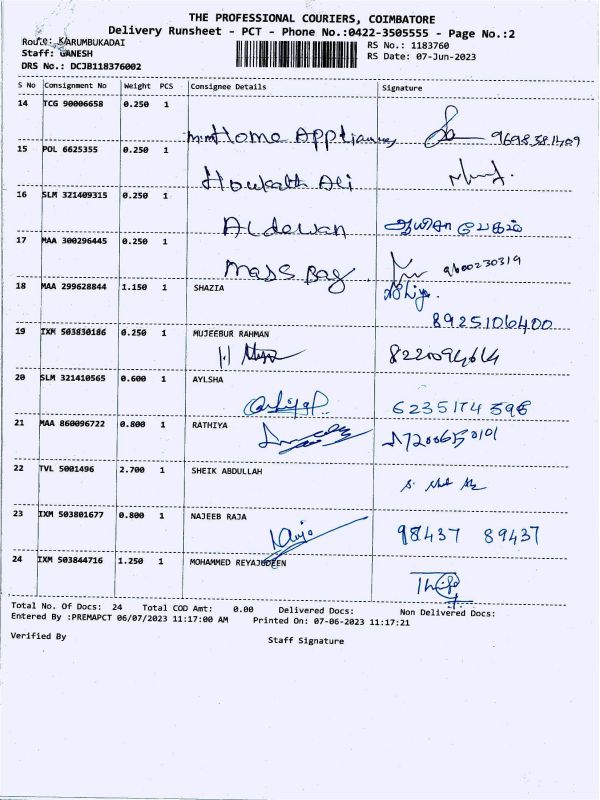 THE PROFESSIONAL COURIERS, COIMBATORE
Delivery Runsheet - PCT - Phone No.:0422-3505555 - Page No.:2
Route: KARUMBUKADAI
RS No.: 1183760
Staff: GANESH
RS Date: 07-Jun-2023
DRS No.: DCJB118376002
S No Consignment No Weight PCS Consignee Details Signature
14 TCG 90006658 0.250 1
Home Appliances
15 POL 6625355 0.250 1
Ali
16 SLM 321409315 0.250 1
Aldewan ஆயிசா பேகம்
17 MAA 300296445 0.250 1
Mass Bag 9600230319
18 MAA 299628844 1.150 1 SHAZIA
8925106400
19 IXM 503830186 0.250 1 MUJEEBUR RAHMAN
20 SLM 321410565 0.600 1 AYLSHA
6235174598
21 MAA 860096722 0.800 1 RATHIYA
22 TVL 5001496 2.700 1 SHEIK ABDULLAH
23 IXM 503801677 0.800 1 NAJEEB RAJA
98437 89437
24 IXM 503844716 1.250 1 MOHAMMED REYAJUDEEN
Total No. Of Docs: 24 Total COD Amt: 0.00 Delivered Docs: Non Delivered Docs:
Entered By :PREMAPCT 06/07/2023 11:17:00 AM Printed On: 07-06-2023 11:17:21
Verified By
Staff Signature